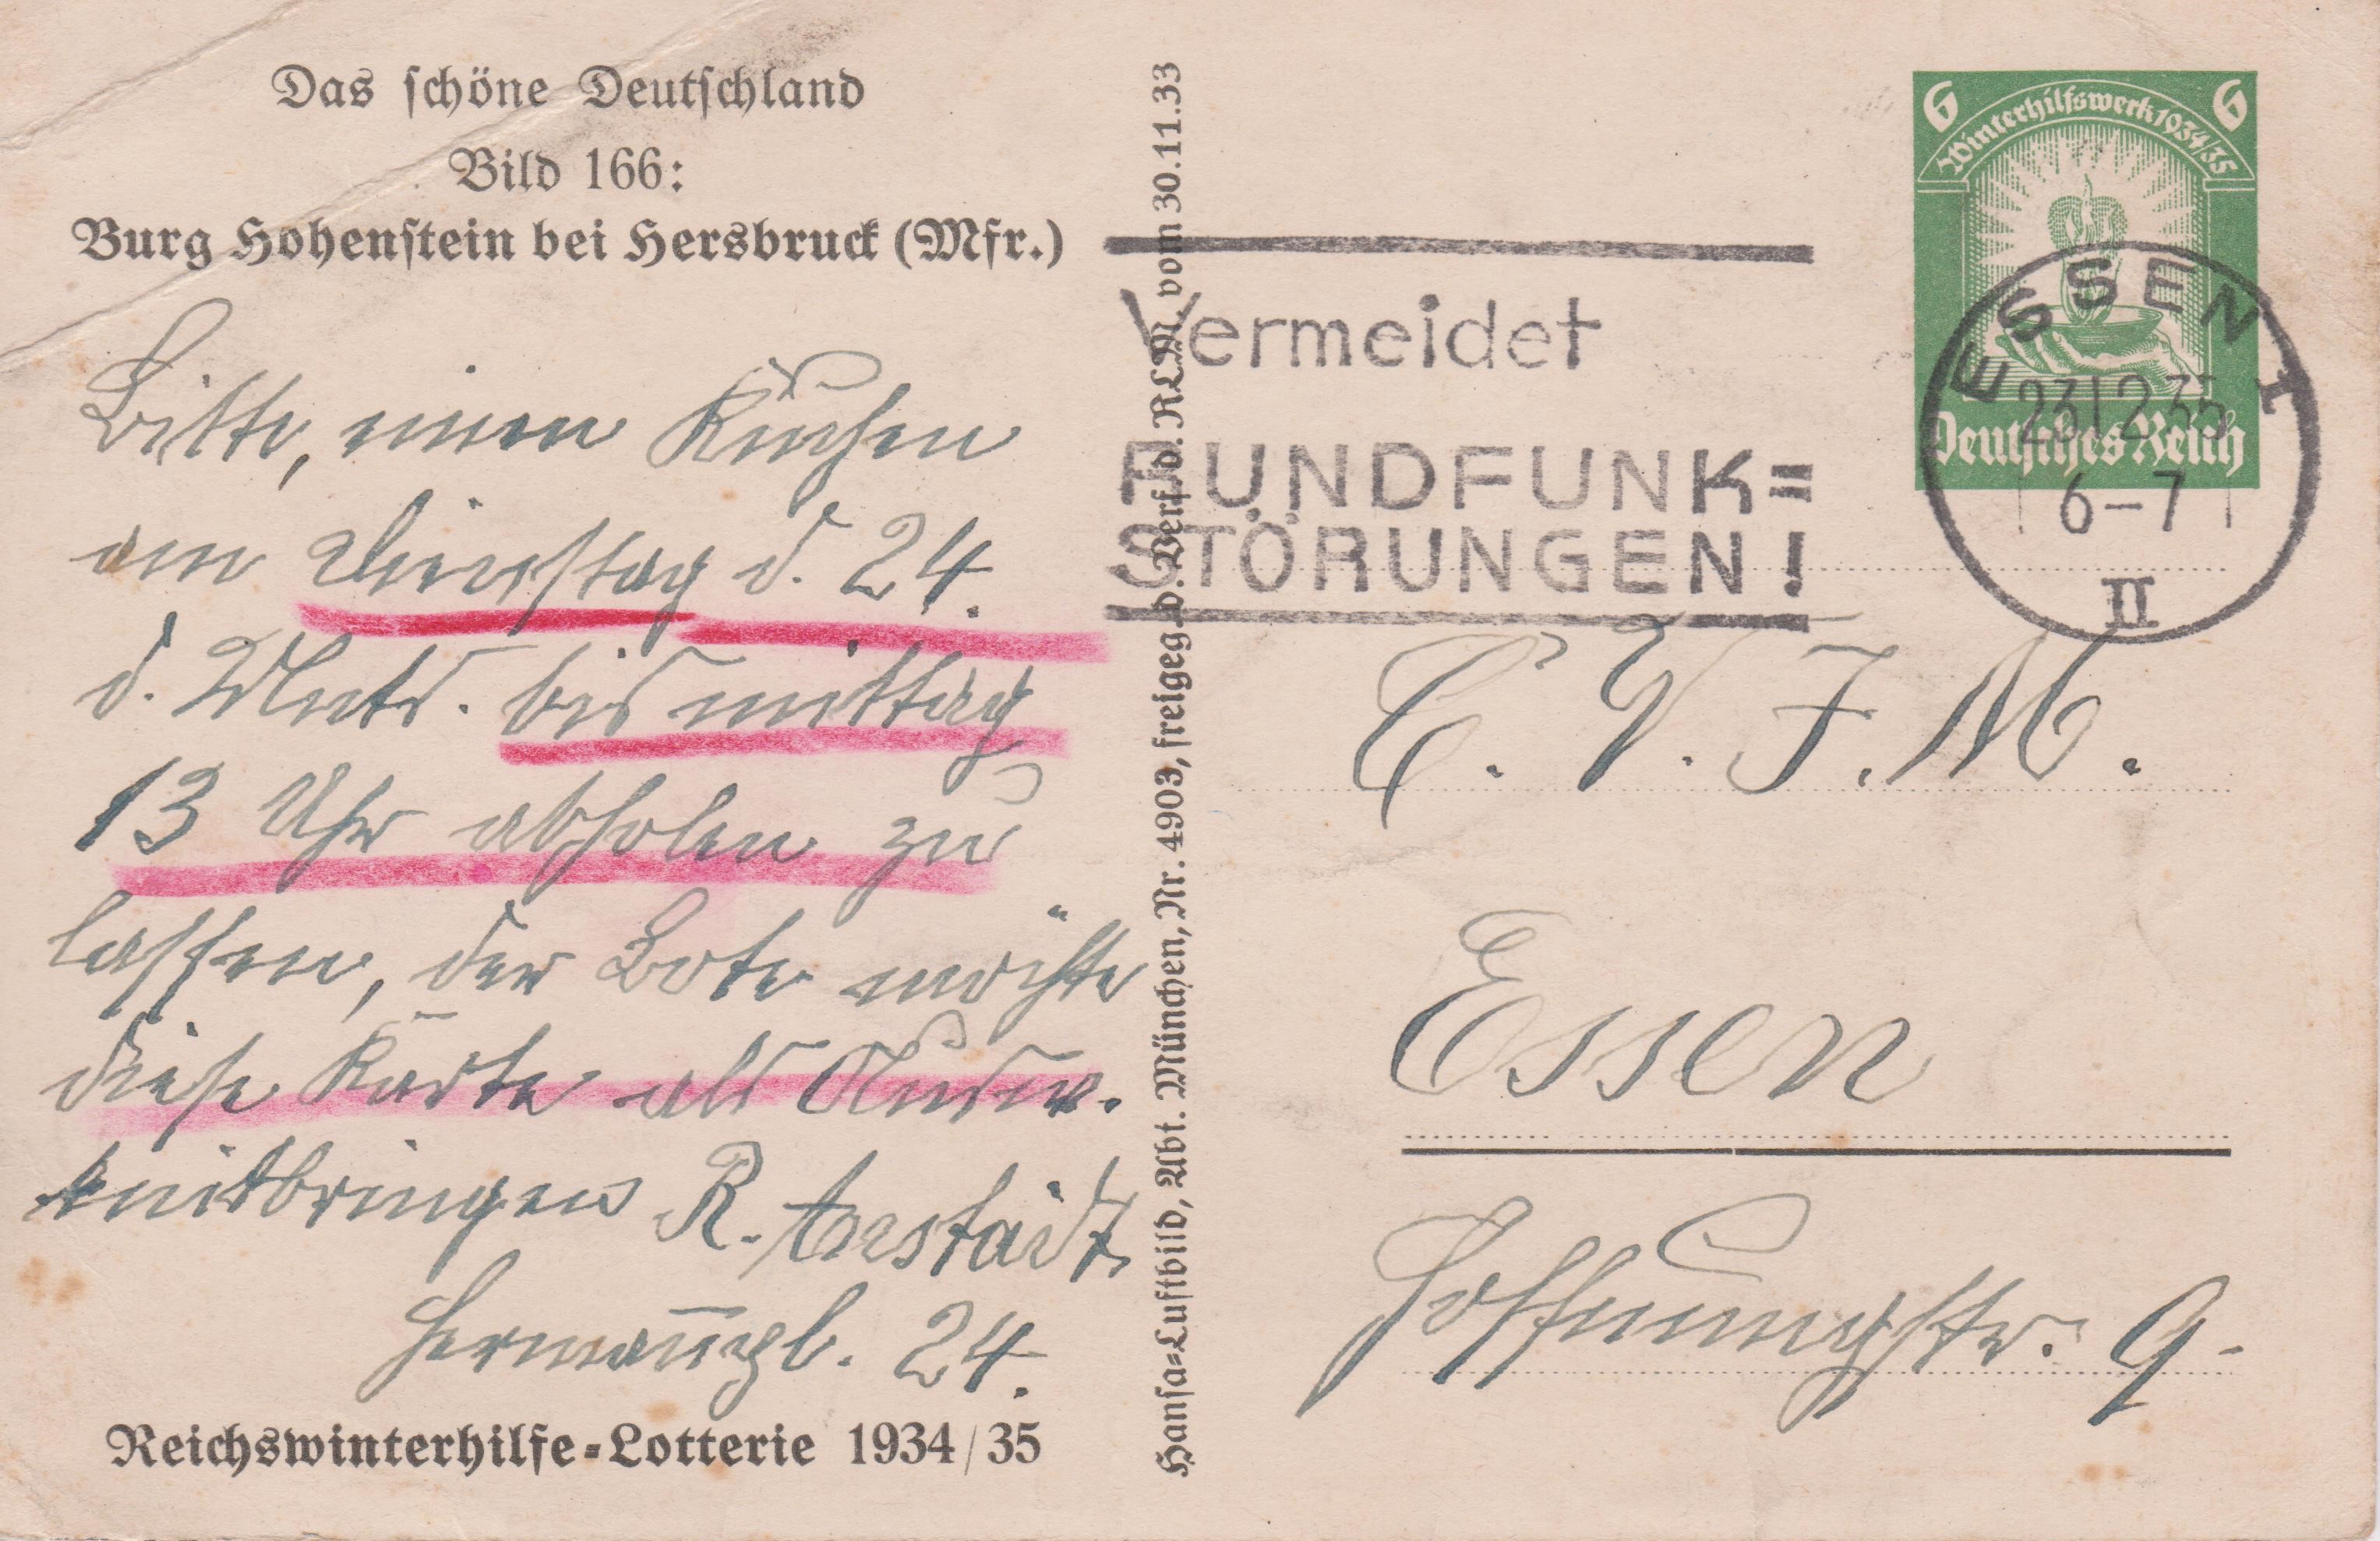 Das schöne Deutschland
Bild 166:
Burg Hohenstein bei Hersbruck (Mfr.)
Bitte, einen Kuchen
am Dienstag d. 24.
d. Mnts. bis mittag
13 Uhr abholen zu
lassen, der Bote möchte
diese Karte als Ausw.
mitbringen R. Arstädt,
Hermannpl. 24.
Reichswinterhilfe=Lotterie 1934/35
Hansa=Luftbild, Abt. München, Nr. 4903, freigeg. d. Verf. d. RLM. vom 30.11.33
Vermeidet
RUNDFUNK=
STÖRUNGEN!
6 6
Winterhilfswerk 1934/35
Deutsches Reich
ESSEN 1
23.12.35
6-7
II
C. V. J. M.
Essen
Hoffnungstr. 9.